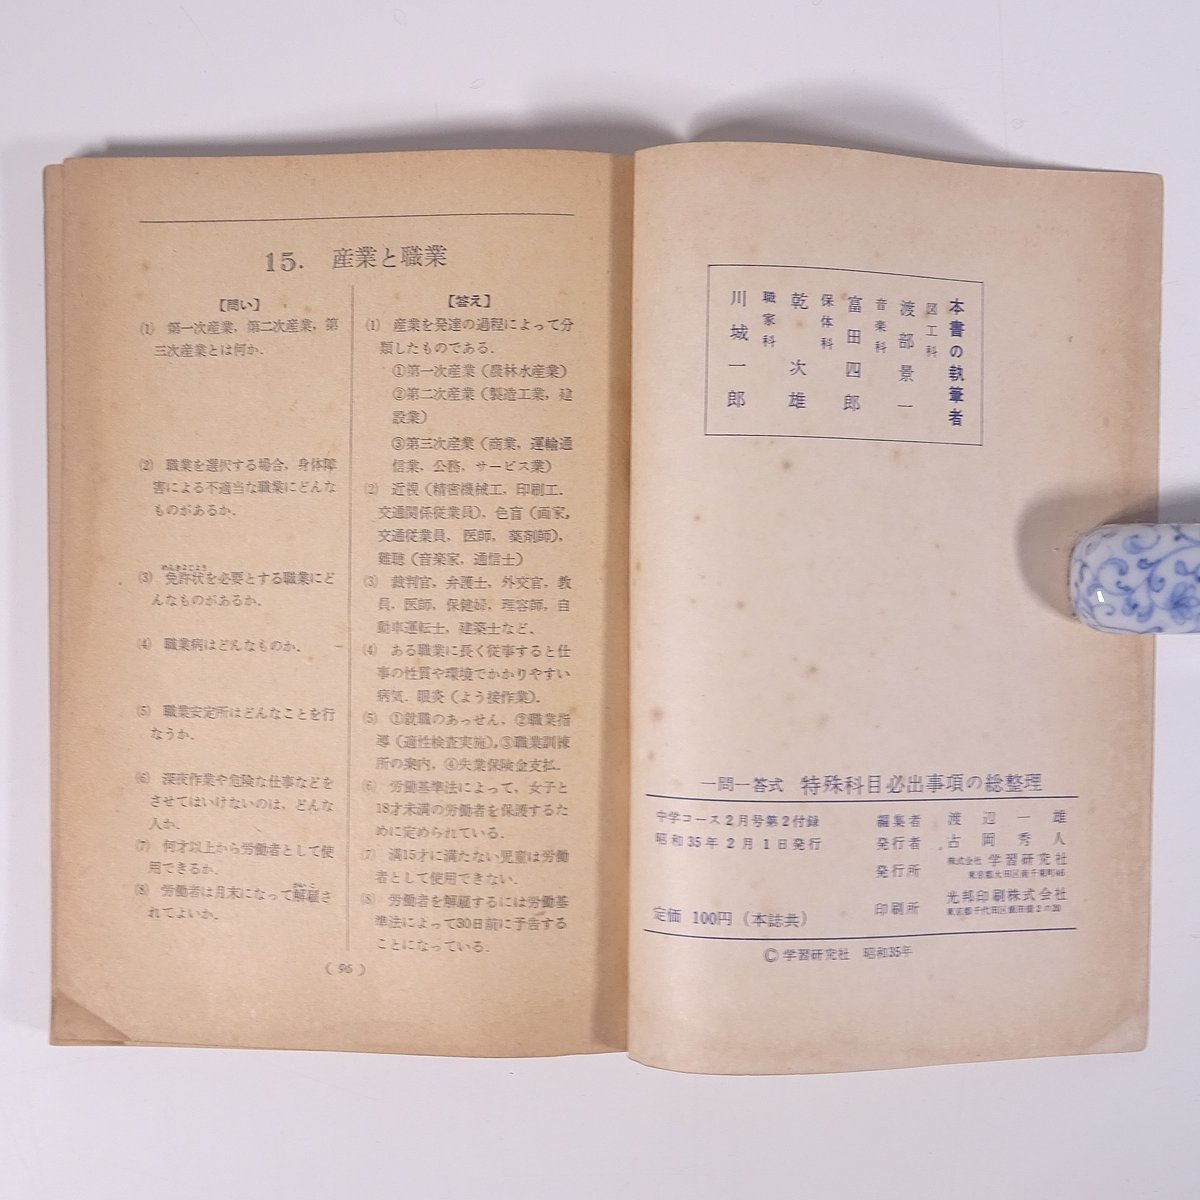 15. 産業と職業
【問い】
(1) 第一次産業，第二次産業，第
三次産業とは何か．
(2) 職業を選択する場合，身体障
害による不適当な職業にどんな
ものがあるか．
めんきょじょう
(3) 免許状を必要とする職業にど
んなものがあるか．
(4) 職業病はどんなものか．
(5) 職業安定所はどんなことを行
なうか．
(6) 深夜作業や危険な仕事などを
させてはいけないのは，どんな
人か．
(7) 何才以上から労働者として使
用できるか．
かいこ
(8) 労働者は月末になって解雇さ
れてよいか．
【答え】
(1) 産業を発達の過程によって分
類したものである．
①第一次産業（農林水産業）
②第二次産業（製造工業，建
設業）
③第三次産業（商業，運輸通
信業，公務，サービス業）
(2) 近視（精密機械工，印刷工．
交通関係従業員），色盲（画家，
交通従業員，医師，薬剤師），
難聴（音楽家，通信士）
(3) 裁判官，弁護士，外交官，教
員，医師，保健婦，理容師，自
動車運転士，建築士など．
(4) ある職業に長く従事すると仕
事の性質や環境でかかりやすい
病気．眼炎（よう接作業）．
(5) ①就職のあっせん，②職業指
導（適性検査実施），③職業訓練
所の案内，④失業保険金支払．
(6) 労働基準法によって，女子と
18才未満の労働者を保護するた
めに定められている．
(7) 満15才に満たない児童は労働
者として使用できない．
(8) 労働者を解雇するには労働基
準法によって30日前に予告する
ことになっている．
（96）
本書の執筆者
図工科
渡部景一
音楽科
富田四郎
保体科
乾次雄
職家科
川城一郎
一問一答式 特殊科目必出事項の総整理
中学コース2月号第2付録
昭和35年2月1日発行
定価 100円（本誌共）
編集者 渡辺一雄
発行者 古岡秀人
発行所 株式会社 学習研究社
東京都大田区南千束町46
印刷所 光邦印刷株式会社
東京都千代田区飯田橋2の20
© 学習研究社 昭和35年